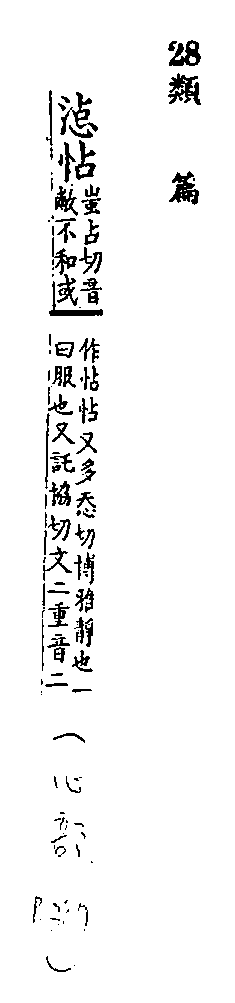 28
類篇
惉怗
蚩占切音
敝不和或
作怗怗又多忝切博雅靜也一
曰服也又託協切文二重音二
(心部
)